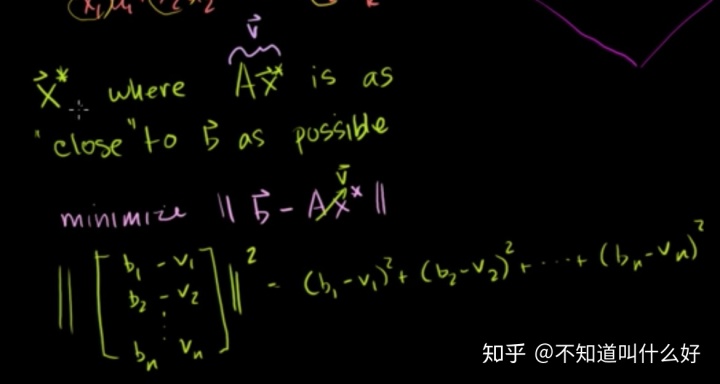 x₁a₁ x₂
v⃗
x⃗* where Ax⃗* is as
"close" to b⃗ as possible
v⃗
minimize ‖ b⃗ - Ax⃗* ‖
‖ [ b₁ - v₁
b₂ - v₂
⋮
bₙ vₙ ] ‖² = (b₁ - v₁)² + (b₂ - v₂)² + ⋯ + (bₙ - vₙ)²
知乎 @不知道叫什么好